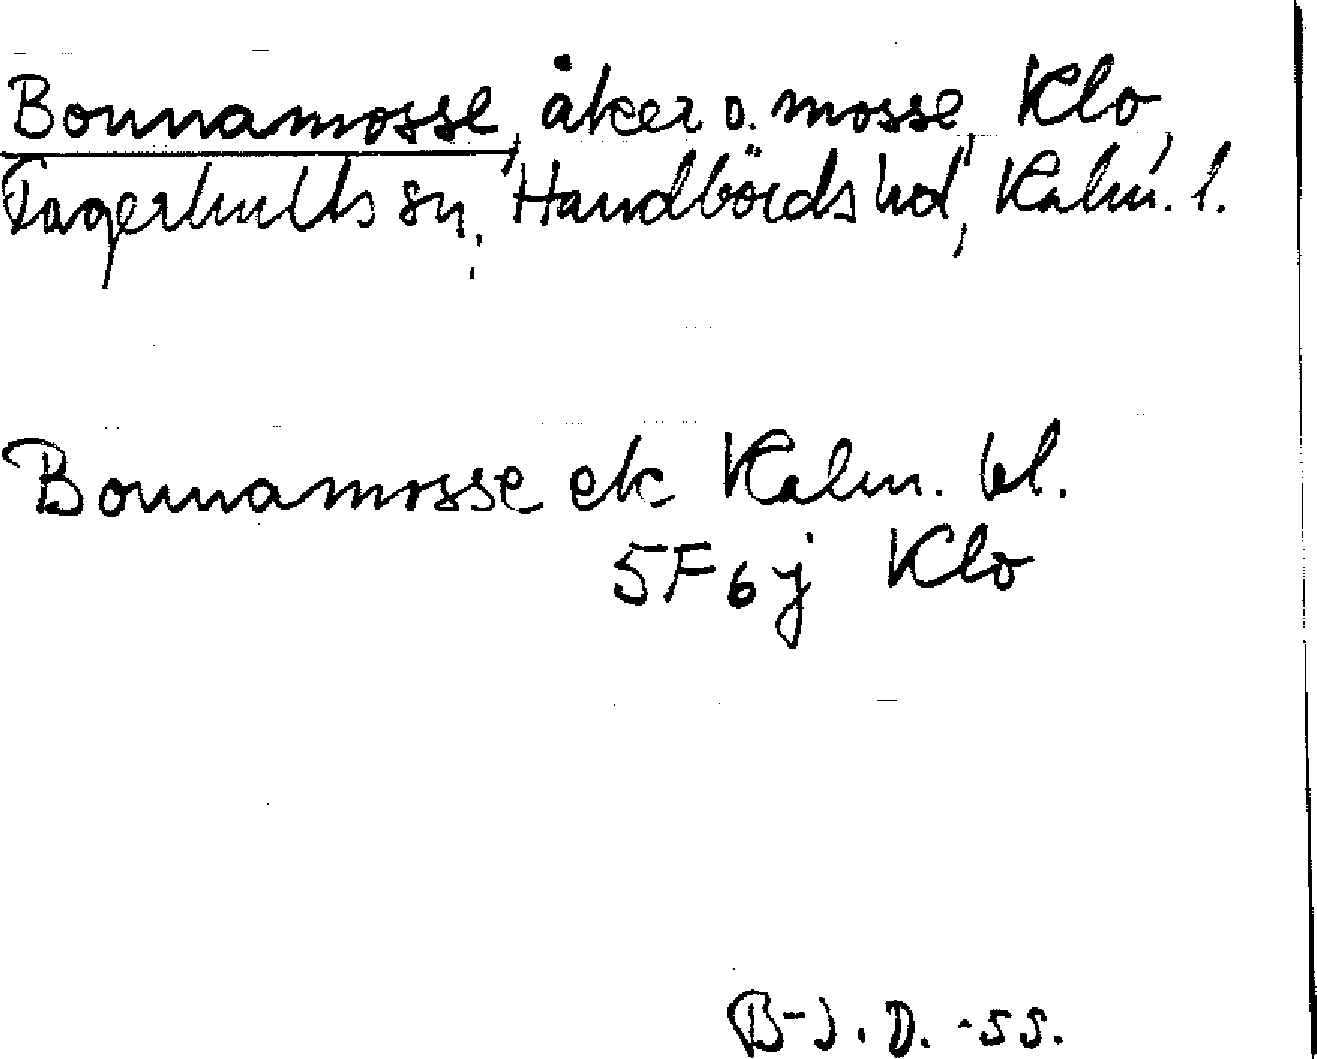 Bonnamosse, åker o. mosse, Klo,
Fagerhults sn, Handbörds hd, Kalm. l.
Bonnamosse ek Kalm. bl.
5F 6j Klo
B-J. D. -55.